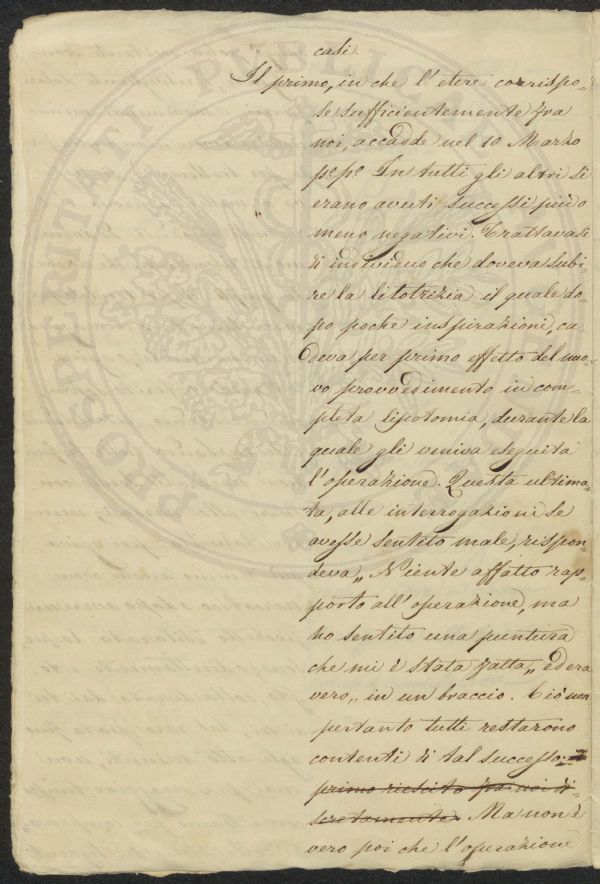 casi.
Il primo, in che l'etere corrispo-
se sufficientemente fra
noi, accadde nel 10 Marzo
p.º p.º In tutti gli altri si
erano avuti successi più o
meno negativi. Trattavasi
di individuo che doveva subi-
re la litotrizia il quale do-
po poche inspirazioni, ca
deva per primo effetto del nuo-
vo provvedimento in com-
pleta lipotomia, durante la
quale gli veniva eseguita
l'operazione. Questa ultima-
ta, alle interrogazioni se
avesse sentito male, rispon-
deva „ Niente affatto rap-
porto all'operazione, ma
ho sentito una puntura
che mi è stata fatta „ ed era
vero, in un braccio. Ciò non
pertanto tutti restarono
contenti di tal successo:
primo riescito fra noi di-
scretamente. Ma non è
vero poi che l'operazione
PROSPERITATI PUBLICAE